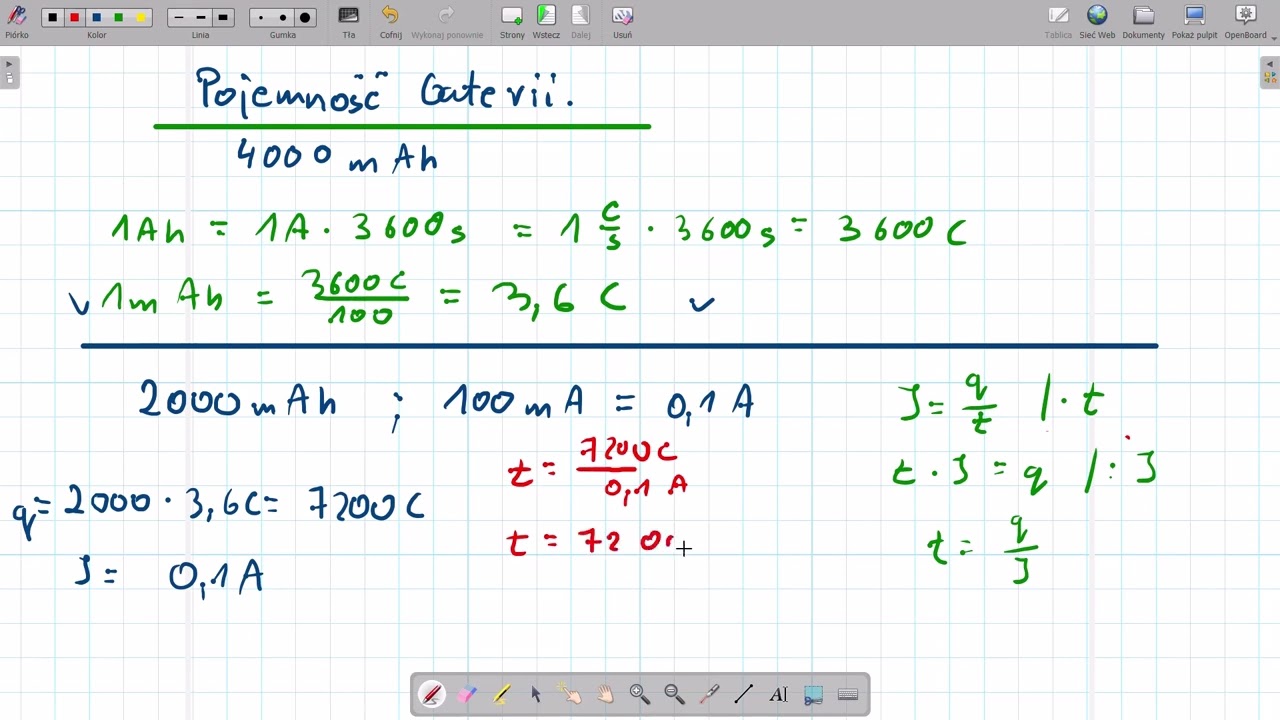 Piórko Kolor Linia Gumka Tła Cofnij Wykonaj ponownie Strony Wstecz Dalej Usuń Tablica Sieć Web Dokumenty Pokaż pulpit OpenBoard
Pojemność baterii.
4000 mAh
1Ah = 1A · 3600s = 1 C/s · 3600s = 3600C
1mAh = 3600C/100 = 3,6 C
2000mAh ; 100mA = 0,1A
q = 2000 · 3,6C = 7200C
I = 0,1A
t = 7200C/0,1A
t = 72 00
I = q/t |· t
t · I = q |: I
t = q/I
AI